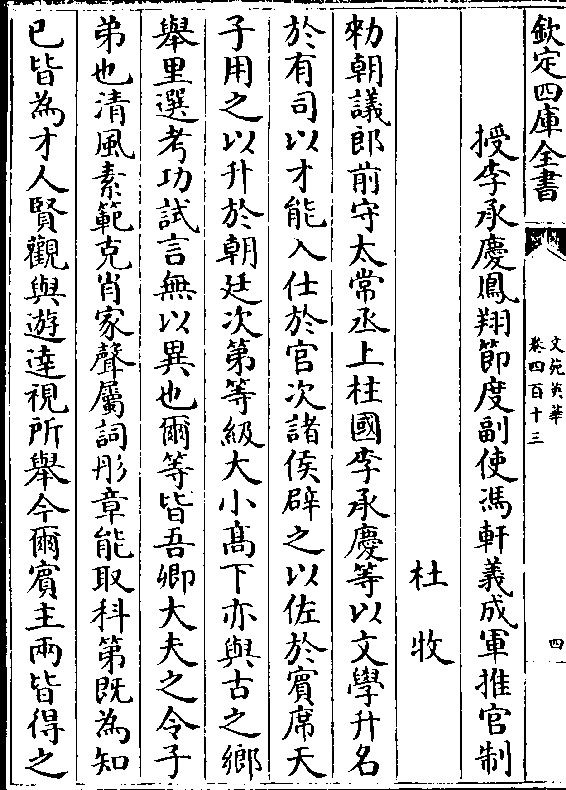 欽定四庫全書
文苑英華
卷四百十三
四
授李承慶鳳翔節度副使馮軒義成軍推官制
杜牧
勑朝議郎前守太常丞上柱國李承慶等以文學升名
於有司以才能入仕於官次諸侯辟之以佐於賓席天
子用之以升於朝廷次第等級大小髙下亦與古之鄉
舉里選考功試言無以異也爾等皆吾卿大夫之令子
弟也清風素範克肖家聲屬詞彤章能取科第既為知
已皆為才人賢觀與遊達視所舉今爾賓主兩皆得之